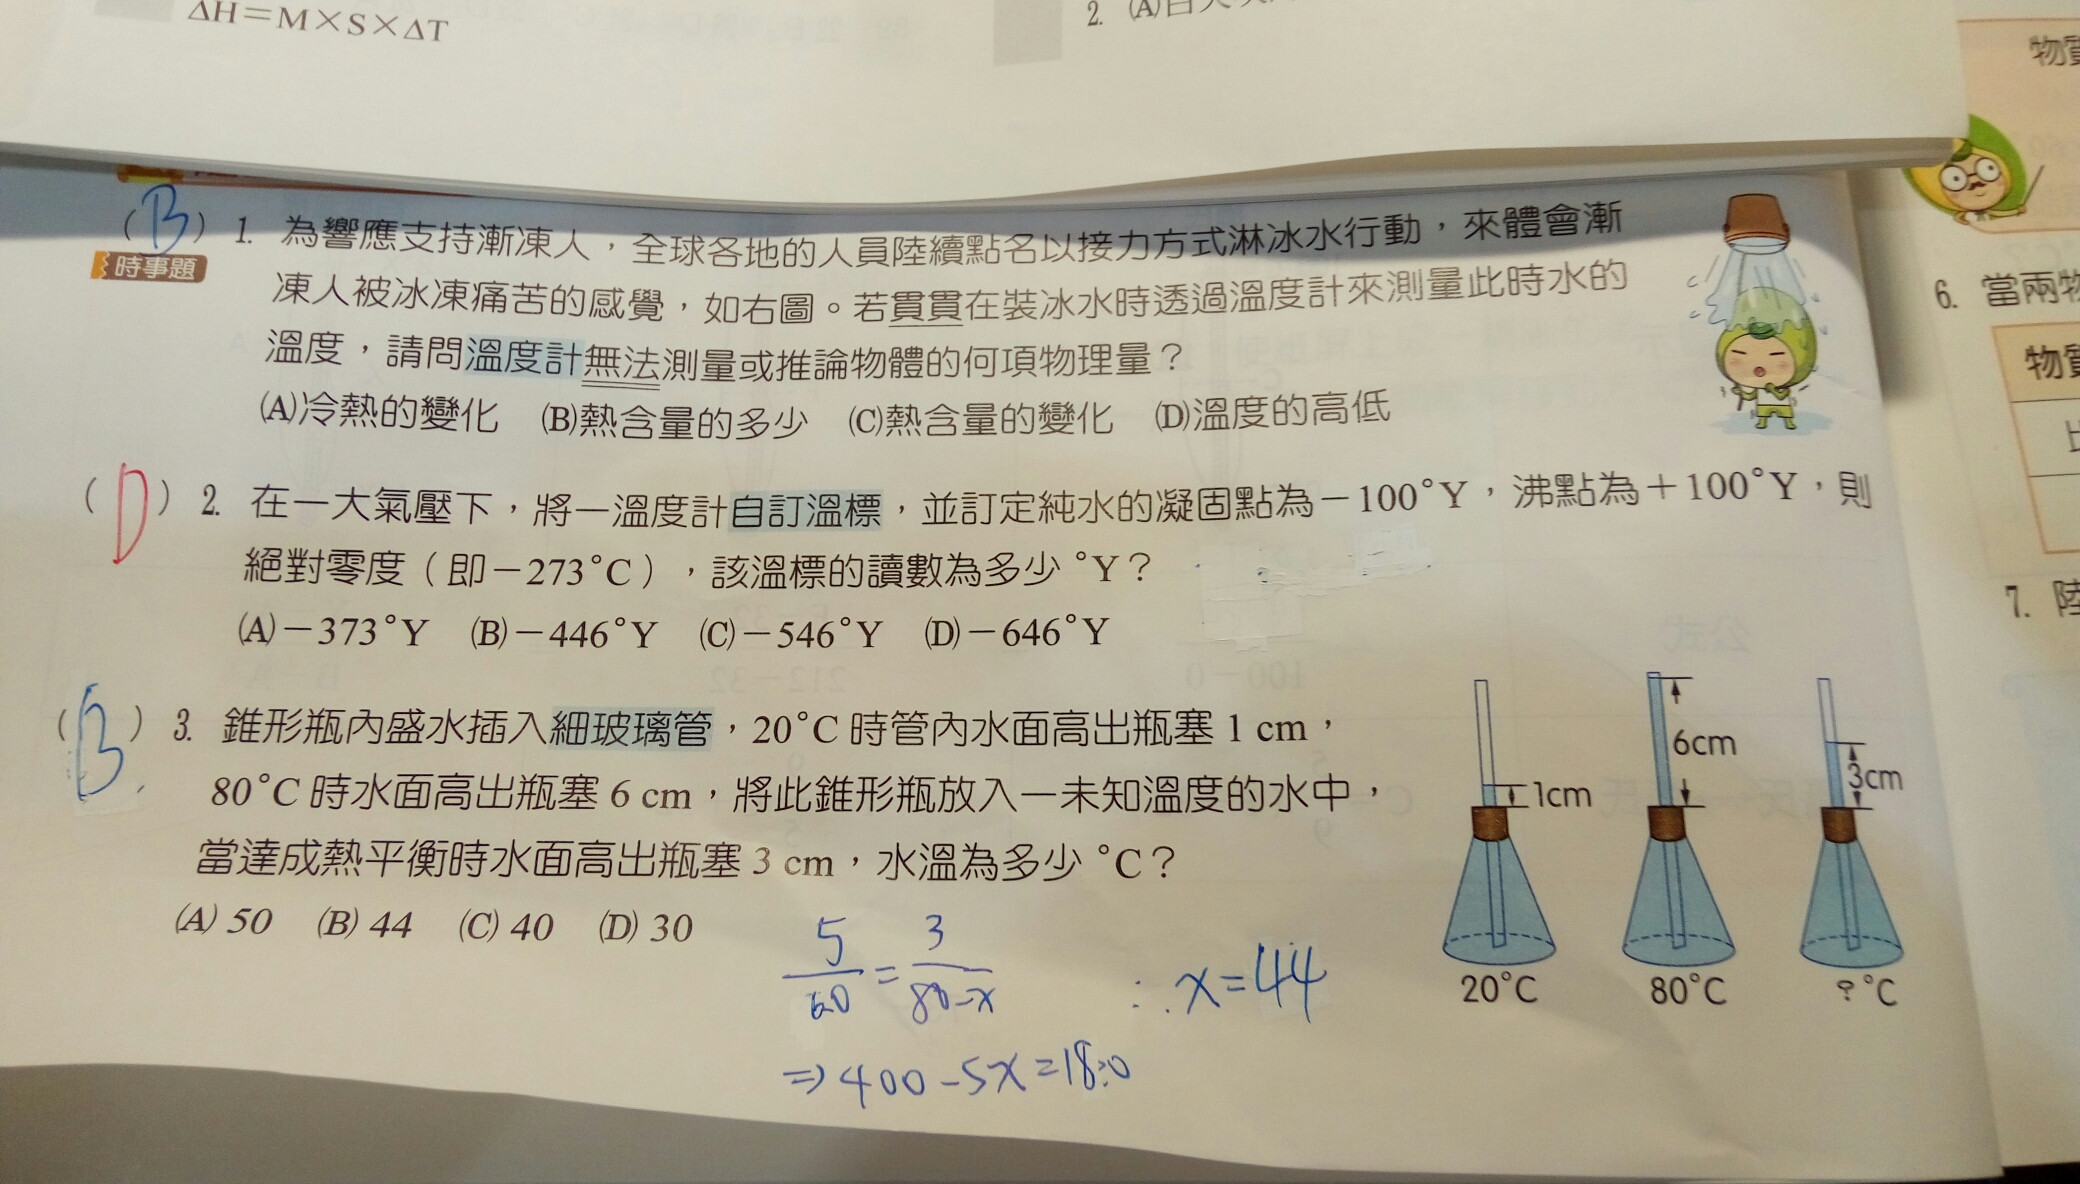 ΔH=M×S×ΔT
2. (A)
物質
(B) 1. 為響應支持漸凍人，全球各地的人員陸續點名以接力方式淋冰水行動，來體會漸
時事題
凍人被冰凍痛苦的感覺，如右圖。若貫貫在裝冰水時透過溫度計來測量此時水的
溫度，請問溫度計無法測量或推論物體的何項物理量？
(A)冷熱的變化 (B)熱含量的多少 (C)熱含量的變化 (D)溫度的高低
(D) 2. 在一大氣壓下，將一溫度計自訂溫標，並訂定純水的凝固點為－100°Y，沸點為＋100°Y，則
絕對零度（即－273°C），該溫標的讀數為多少 °Y？
(A)－373°Y (B)－446°Y (C)－546°Y (D)－646°Y
(B) 3. 錐形瓶內盛水插入細玻璃管，20°C 時管內水面高出瓶塞 1 cm，
80°C 時水面高出瓶塞 6 cm，將此錐形瓶放入一未知溫度的水中，
當達成熱平衡時水面高出瓶塞 3 cm，水溫為多少 °C？
(A) 50 (B) 44 (C) 40 (D) 30
5/60 = 3/80-x ∴x=44
⇒400-5x=180
1cm
6cm
3cm
20°C
80°C
?°C
6. 當兩物
物質
比
7. 陸